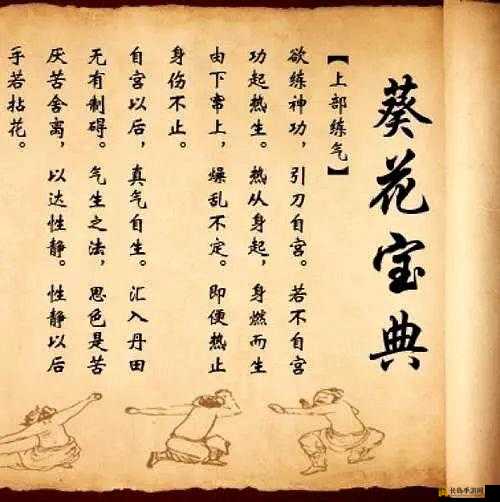 葵花宝典
【上部练气】
欲练神功，引刀自宫。若不自宫
功起热生。热从身起，身燃而生
由下常上，燥乱不定。即便热止
身伤不止。
自宫以后，真气自生。汇入丹田
无有制碍。气生之法，思色是苦
厌苦舍离，以达性静。性静以后
手若拈花。